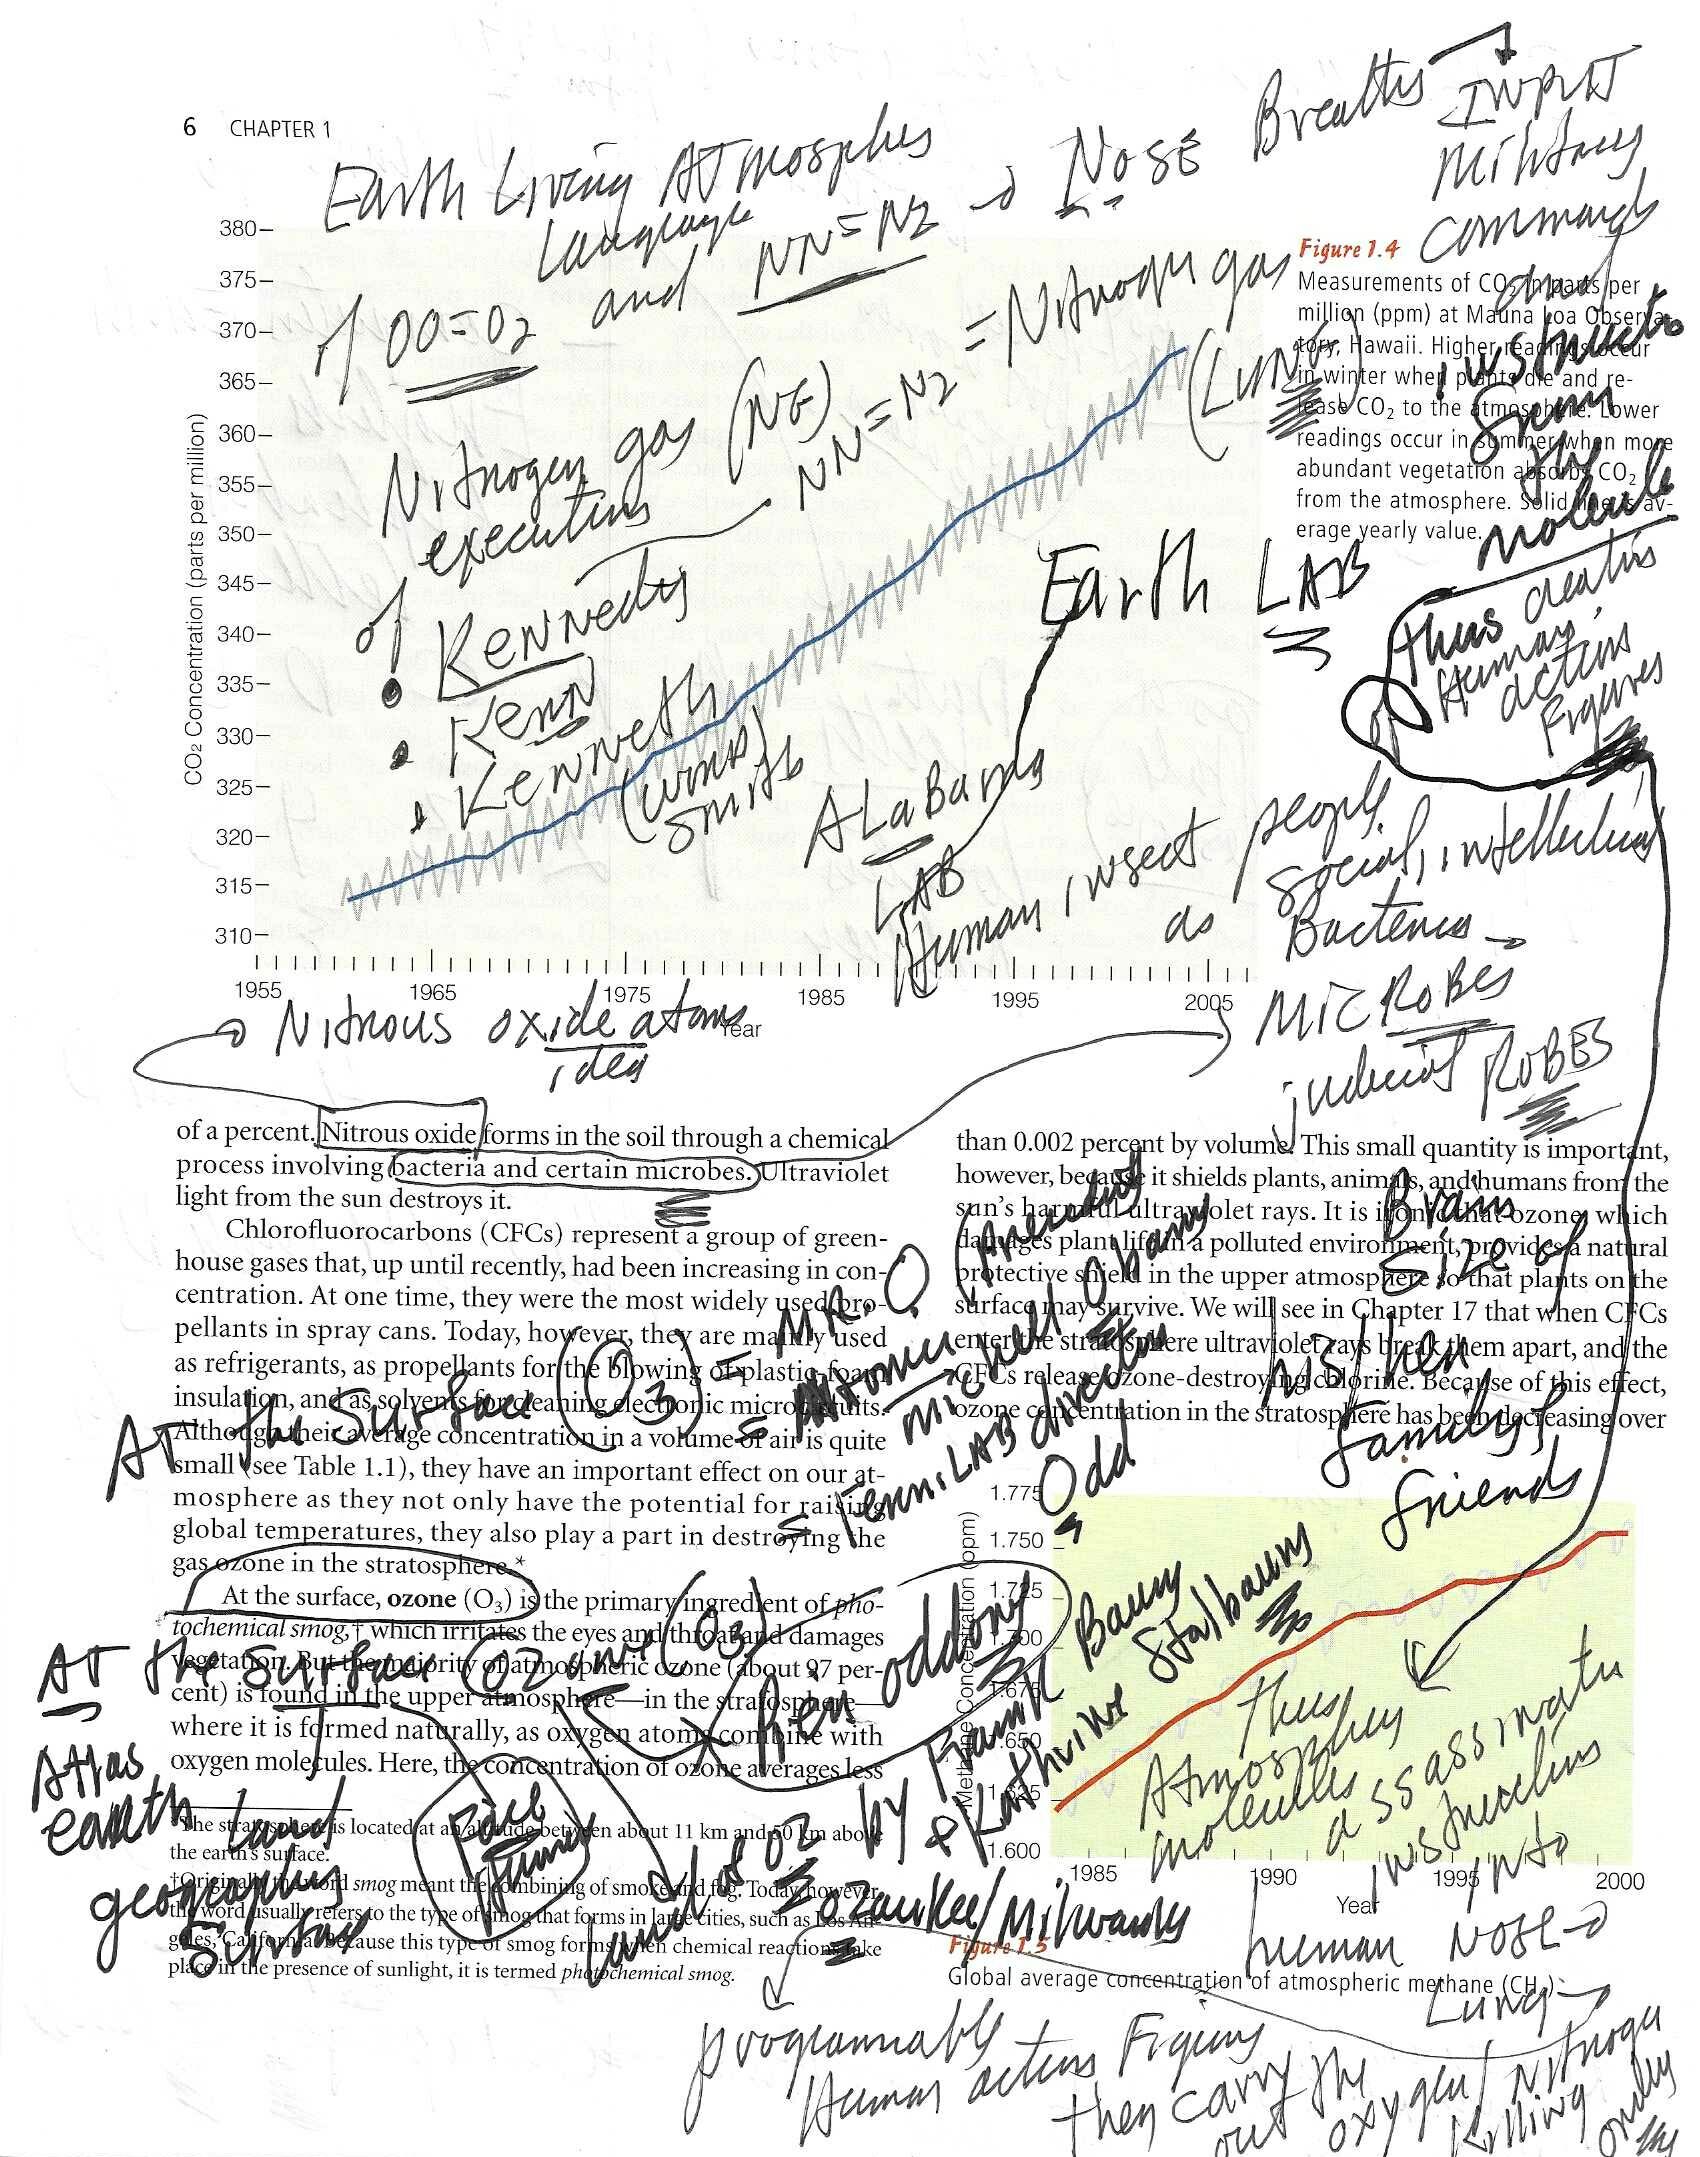 6 CHAPTER 1
Earth Living ATmosphes
Language
of OO=O2 and NN=N2 → NOSE Breaths → INPUT
Militarys
commands
and
instructs
from
the
molecule
thus creatis
Human
actions
Figures
Nitrogen gas (NG)
NN=N2 = Nitrogen gas (LUNG)
executions
of Kennedys
Kenn
Kenneth
(work)
Smith
Earth LAB
ALaBama
LAB
Human insect people
as social, intellectual
Bacterias →
MICROBES
judicial ROBES
380
375
370
365
360
355
350
345
340
335
330
325
320
315
310
CO2 Concentration (parts per million)
1955 1965 1975 1985 1995 2005
Year
Figure 1.4
Measurements of CO2 in parts per
million (ppm) at Mauna Loa Observa-
tory, Hawaii. Higher readings occur
in winter when plants die and re-
lease CO2 to the atmosphere. Lower
readings occur in summer when more
abundant vegetation absorbs CO2
from the atmosphere. Solid line is av-
erage yearly value.
→ Nitrous oxide atoms
idea
of a percent. Nitrous oxide forms in the soil through a chemical
process involving bacteria and certain microbes. Ultraviolet
light from the sun destroys it.
Chlorofluorocarbons (CFCs) represent a group of green-
house gases that, up until recently, had been increasing in con-
centration. At one time, they were the most widely used pro-
pellants in spray cans. Today, however, they are mainly used
as refrigerants, as propellants for the blowing of plastic-foam
insulation, and as solvents for cleaning electronic microcircuits.
Although their average concentration in a volume of air is quite
small (see Table 1.1), they have an important effect on our at-
mosphere as they not only have the potential for raising
global temperatures, they also play a part in destroying the
gas ozone in the stratosphere.*
At the surface, ozone (O3) is the primary ingredient of pho-
tochemical smog,† which irritates the eyes and throat and damages
vegetation. But the majority of atmospheric ozone (about 97 per-
cent) is found in the upper atmosphere—in the stratosphere—
where it is formed naturally, as oxygen atoms combine with
oxygen molecules. Here, the concentration of ozone averages less
*The stratosphere is located at an altitude between about 11 km and 50 km above
the earth's surface.
†Originally the word smog meant the combining of smoke and fog. Today, however,
the word usually refers to the type of smog that forms in large cities, such as Los An-
geles, California. Because this type of smog forms when chemical reactions take
place in the presence of sunlight, it is termed photochemical smog.
than 0.002 percent by volume. This small quantity is important,
however, because it shields plants, animals, and humans from the
sun's harmful ultraviolet rays. It is ironic that ozone, which
damages plant life in a polluted environment, provides a natural
protective shield in the upper atmosphere so that plants on the
surface may survive. We will see in Chapter 17 that when CFCs
enter the stratosphere ultraviolet rays break them apart, and the
CFCs release ozone-destroying chlorine. Because of this effect,
ozone concentration in the stratosphere has been decreasing over
AT the Surface (O3) = MR. O (President
Obama
= Michell
= Fermi LAB director
Odd
Brain
size of
his/her
Family &
Friends
AT the Surface (Ozone (O3)
Pier oddone
Atlas
earth Land
geographys
Surface
Land of OZ by Frank Baum
& Kathrine Stalbaum
= Ozaukee/Milwauky
programmable
Human action Figures
they carry
out the
oxygen/Nitrogen
killing
orders
Thus
Atmosphes
molecules
assassination
instructions
into
human NOSE →
Lung →
1.775
1.750
1.725
1.700
1.675
1.650
1.625
1.600
Methane Concentration (ppm)
1985 1990 1995 2000
Year
Figure 1.5
Global average concentration of atmospheric methane (CH4).